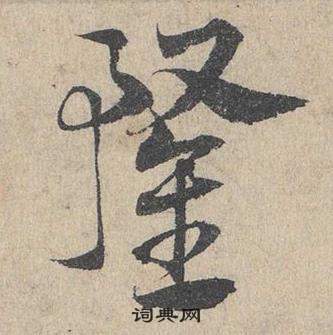 隆
词典网